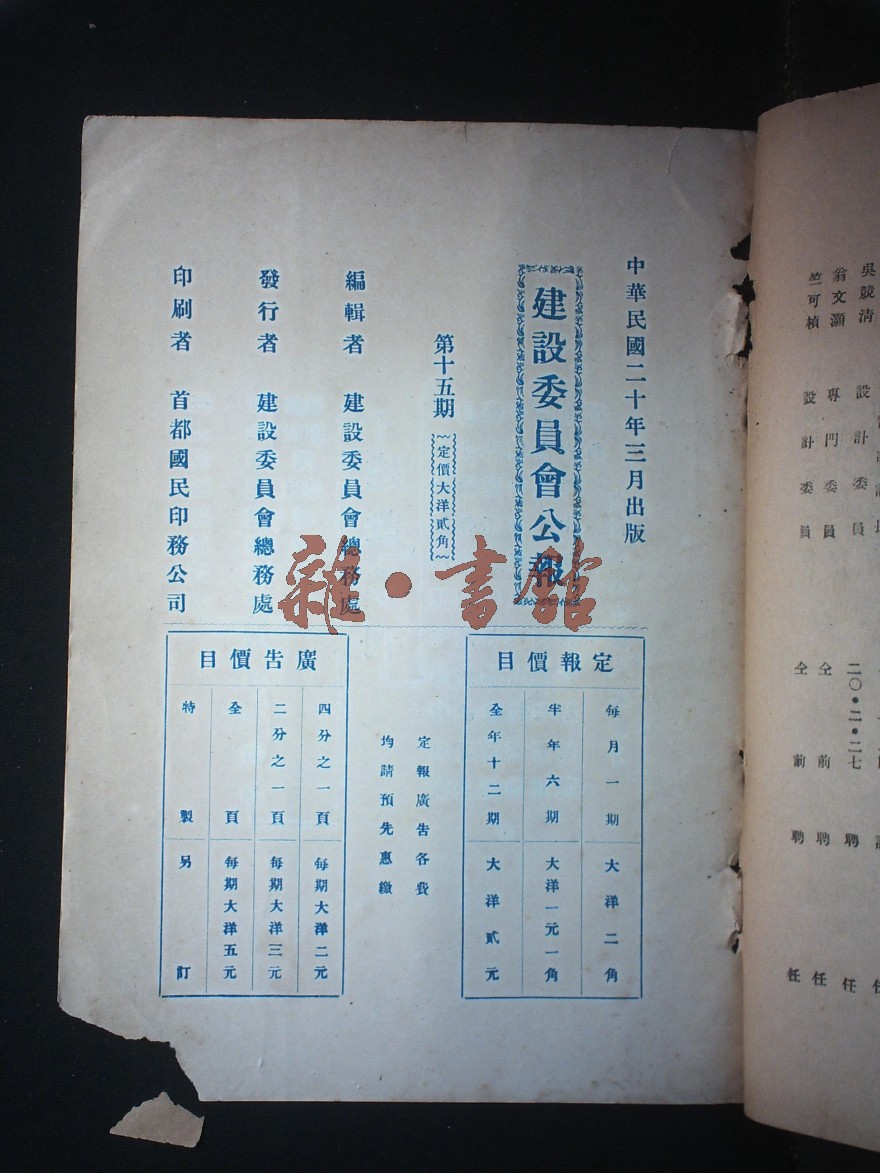 吳競清　設計委員　二〇・二・二七聘任
翁文灝　專門委員　仝前聘任
竺可楨　設計委員　仝前聘任
中華民國二十年三月出版
建設委員會公報
第十五期
定價大洋貳角
編輯者　建設委員會總務處
發行者　建設委員會總務處
印刷者　首都國民印務公司
定報價目
每月一期　大洋二角
半年六期　大洋一元一角
全年十二期　大洋貳元
定報廣告各費
均請預先惠繳
廣告價目
四分之一頁　每期大洋二元
二分之一頁　每期大洋三元
全頁　每期大洋五元
特製　另訂
雜・書館